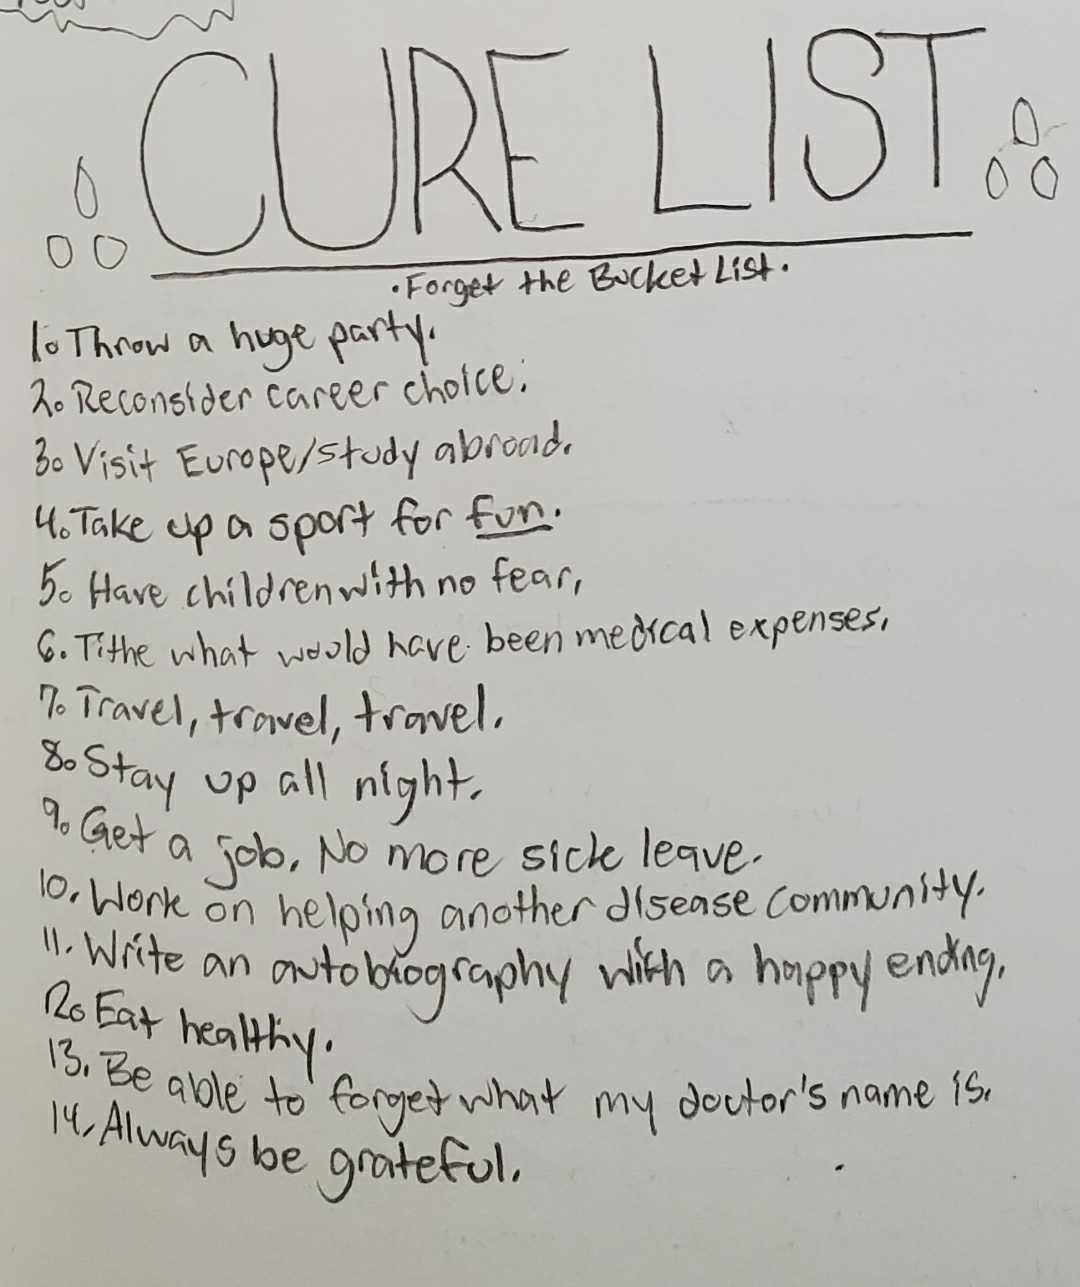 CURE LIST
·Forget the Bucket List·
1. Throw a huge party.
2. Reconsider career choice.
3. Visit Europe/study abroad.
4. Take up a sport for fun.
5. Have children with no fear,
6. Tithe what would have been medical expenses.
7. Travel, travel, travel.
8. Stay up all night.
9. Get a job. No more sick leave.
10. Work on helping another disease community.
11. Write an autobiography with a happy ending.
12. Eat healthy.
13. Be able to forget what my doctor's name is.
14. Always be grateful.